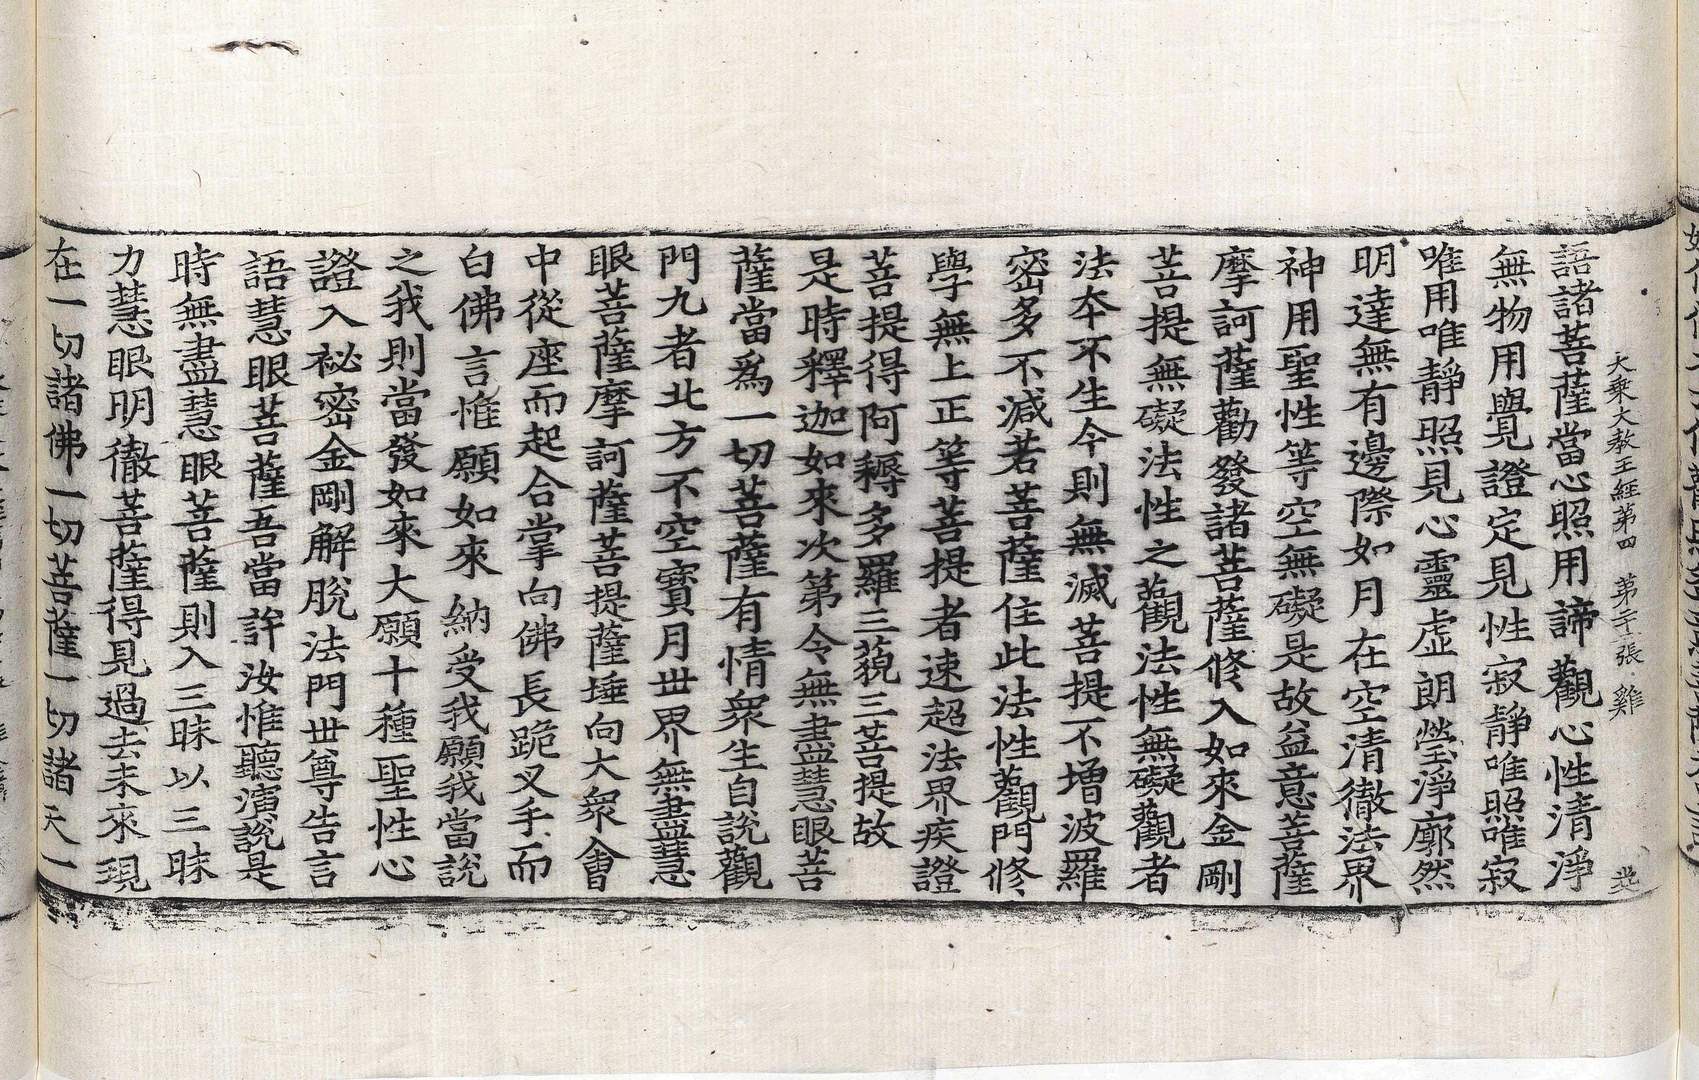 大乘大教王經第四 第二十張 雞
語諸菩薩當心照用諦觀心性清淨
無物用覺證定見性寂靜唯照唯寂
唯用唯靜照見心靈虛朗瑩淨廓然
明達無有邊際如月在空清徹法界
神用聖性等空無礙是故益意菩薩
摩訶薩勸發諸菩薩修入如來金剛
菩提無礙法性之觀法性無礙觀者
法夲不生今則無滅菩提不增波羅
密多不減若菩薩住此法性觀門修
學無上正等菩提者速超法界疾證
菩提得阿耨多羅三藐三菩提故
是時釋迦如來次第令無盡慧眼菩
薩當爲一切菩薩有情衆生自說觀
門九者北方不空寶月世界無盡慧
眼菩薩摩訶薩菩提薩埵向大衆會
中從座而起合掌向佛長跪叉手而
白佛言惟願如來納受我願我當說
之我則當發如來大願十種聖性心
證入祕密金剛解脫法門世尊告言
語慧眼菩薩吾當許汝惟聽演說是
時無盡慧眼菩薩則入三昧以三昧
力慧眼明徹菩薩得見過去未來現
在一切諸佛一切菩薩一切諸天一